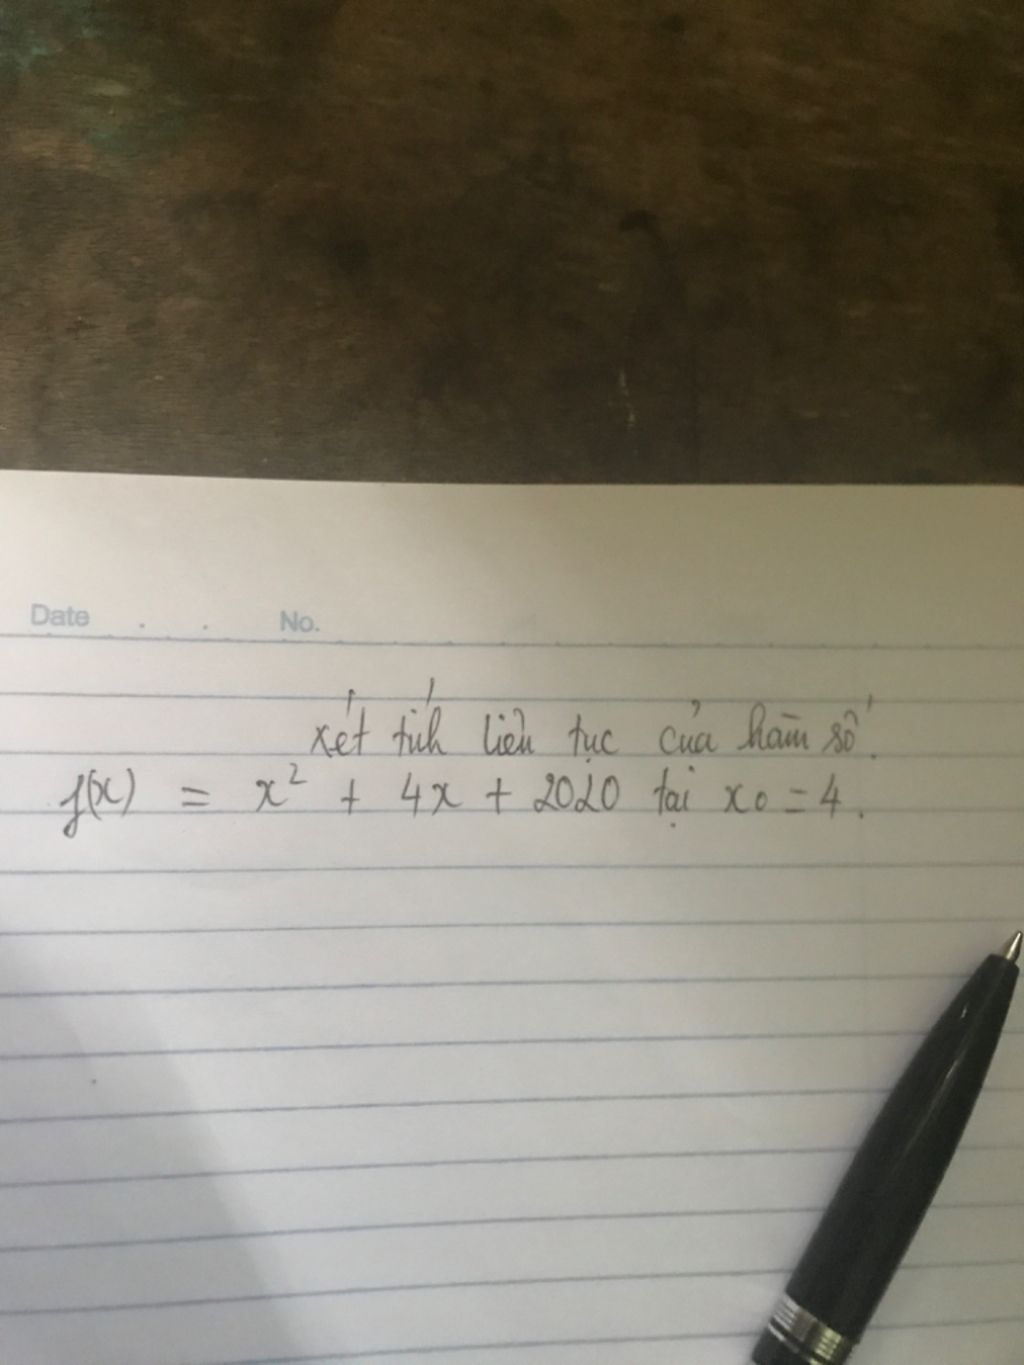 Date . . No.
xét tính liên tục của hàm số.
f(x) = x² + 4x + 2020 tại x₀ = 4.